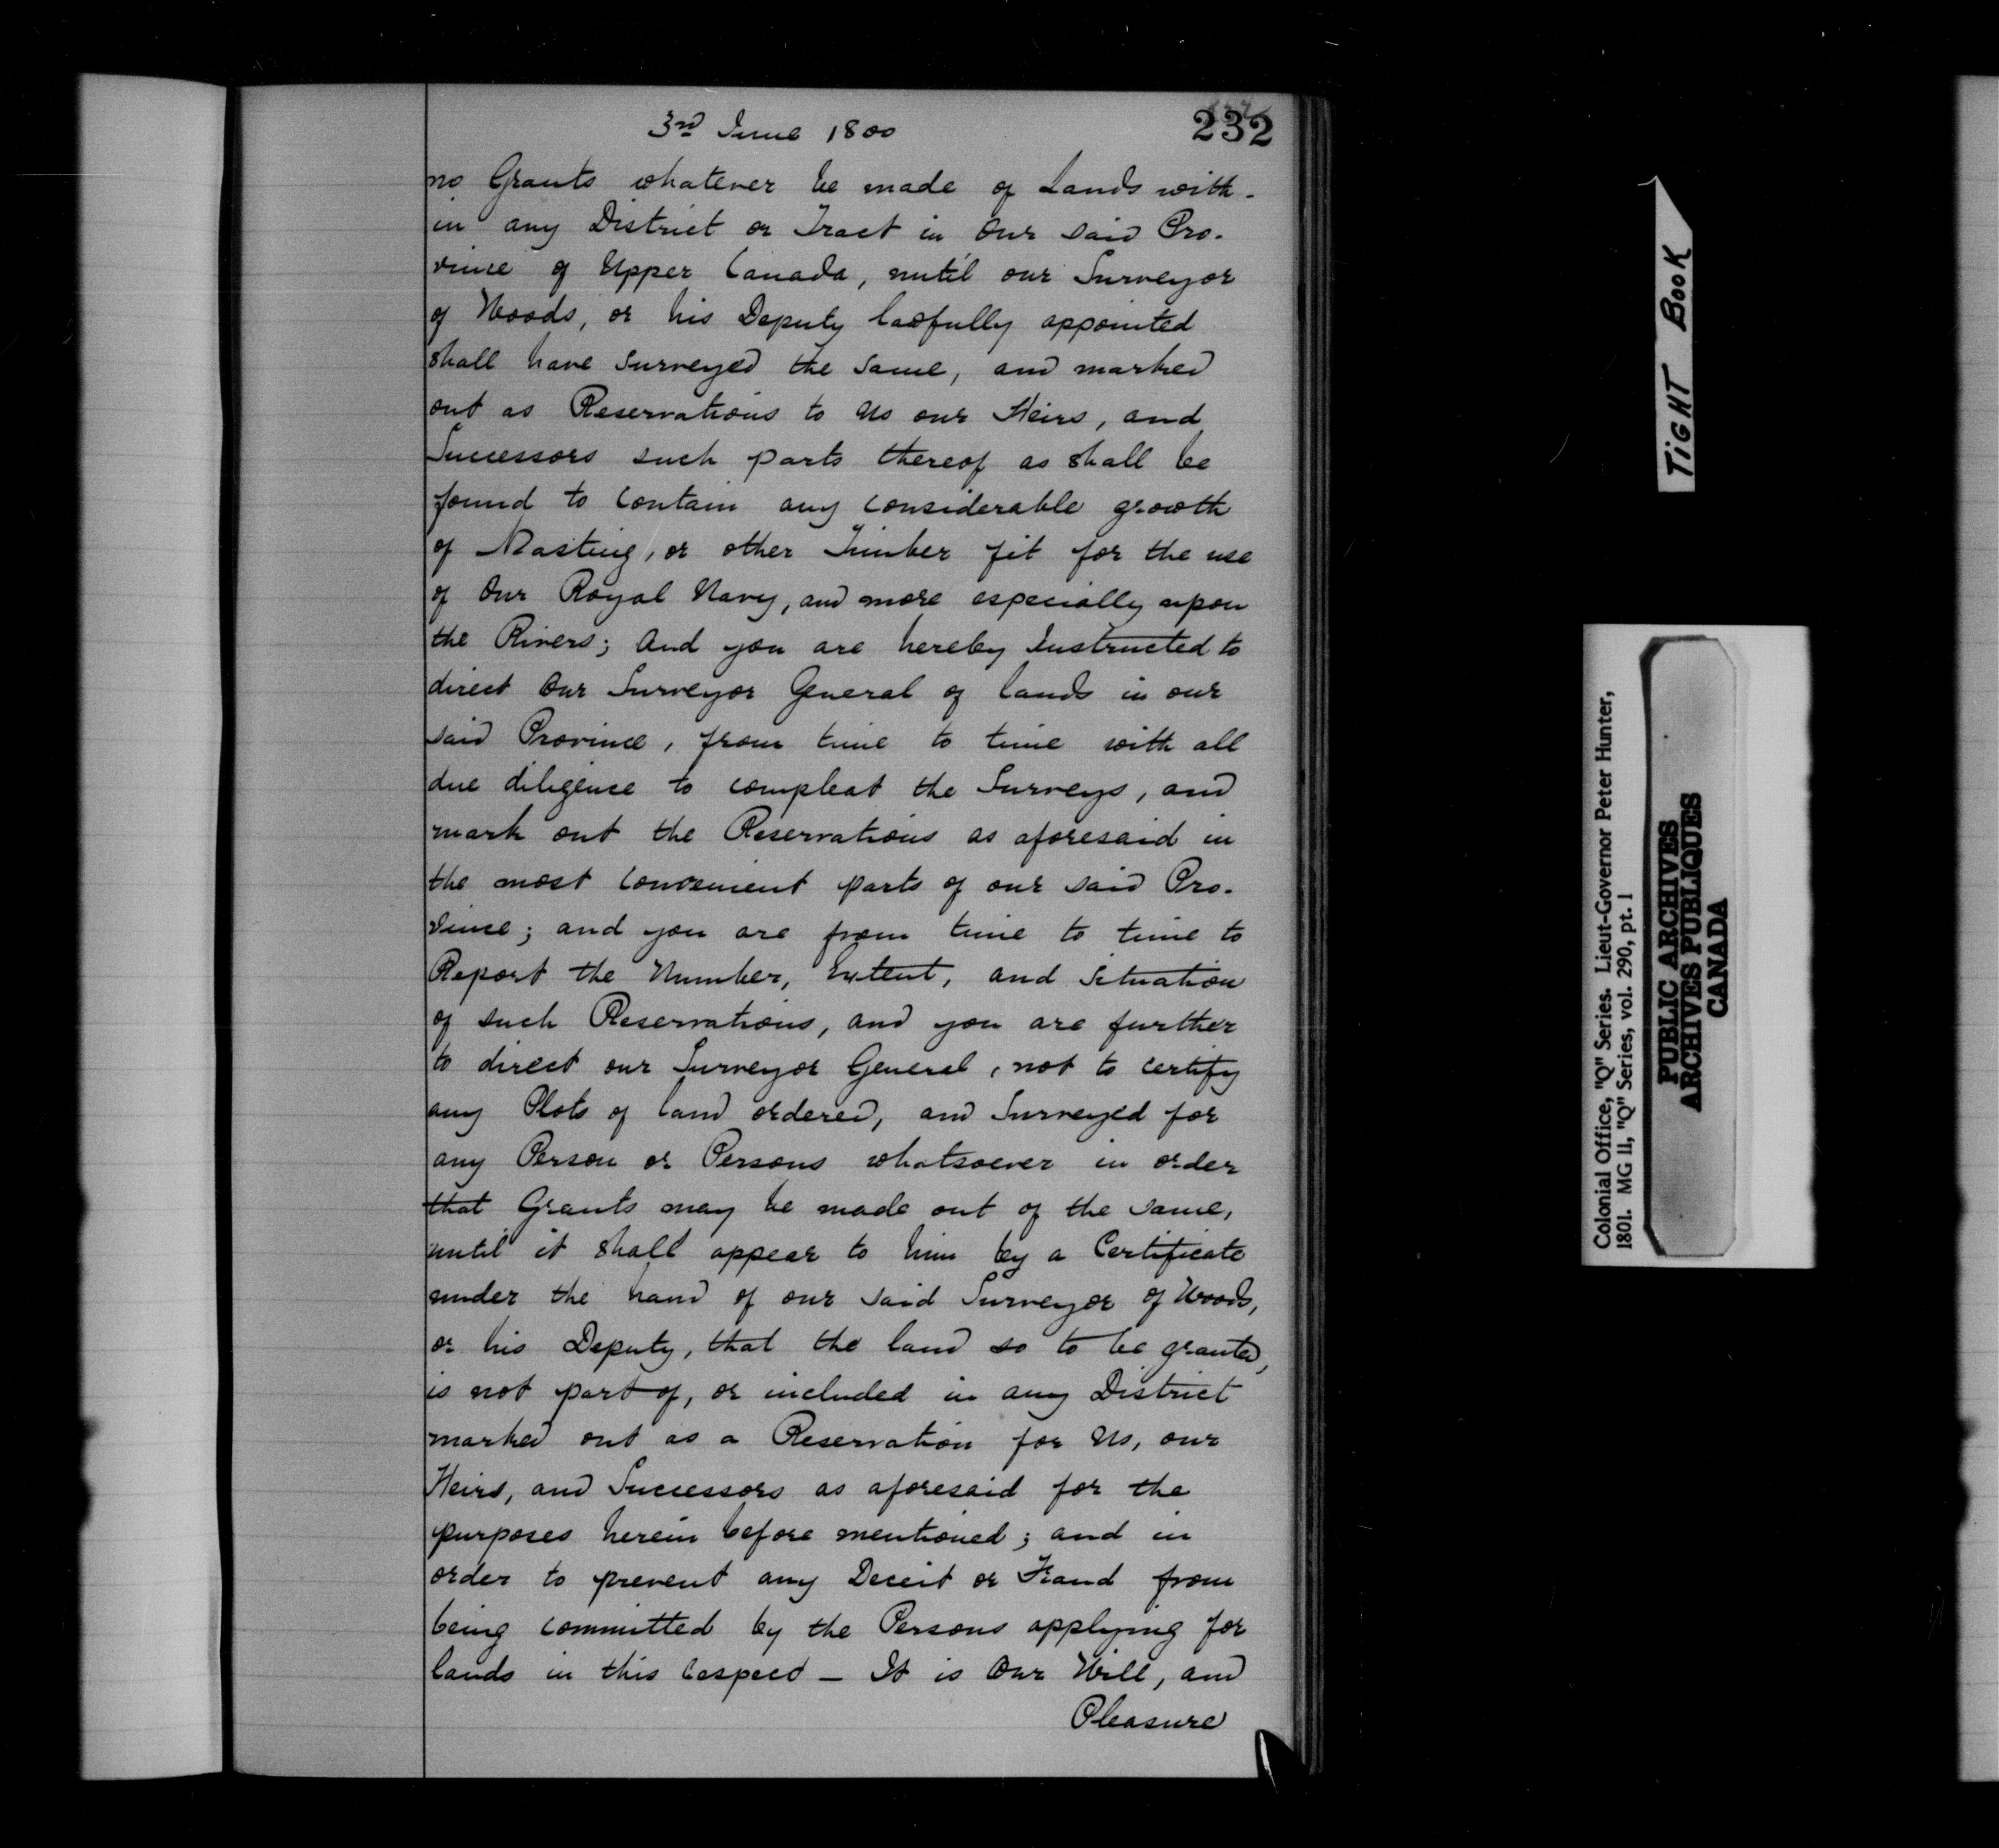 3rd June 1800
232
no Grants whatever be made of Lands with-
in any District or Tract in Our said Pro-
vince of Upper Canada, until our Surveyor
of Woods, or his Deputy lawfully appointed
shall have surveyed the same, and marked
out as Reservations to us our Heirs, and
Successors such parts thereof as shall be
found to contain any considerable growth
of Masting, or other Timber fit for the use
of Our Royal Navy, and more especially upon
the Rivers; And you are hereby Instructed to
direct Our Surveyor General of lands in our
said Province, from time to time with all
due diligence to compleat the Surveys, and
mark out the Reservations as aforesaid in
the most convenient parts of our said Pro-
vince; and you are from time to time to
Report the Number, Extent, and Situation
of such Reservations, and you are further
to direct our Surveyor General, not to certify
any Plots of land ordered, and Surveyed for
any Person or Persons whatsoever in order
that Grants may be made out of the same,
until it shall appear to him by a Certificate
under the hand of our said Surveyor of Woods,
or his Deputy, that the land so to be granted,
is not part of, or included in any District
marked out as a Reservation for Us, our
Heirs, and Successors as aforesaid for the
purposes herein before mentioned; and in
order to prevent any Deceit or Fraud from
being committed by the Persons applying for
lands in this respect – It is Our Will, and
Pleasure
TIGHT BOOK
Colonial Office, "Q" Series. Lieut-Governor Peter Hunter,
1801. MG 11, "Q" Series, vol. 290, pt. 1
PUBLIC ARCHIVES
ARCHIVES PUBLIQUES
CANADA